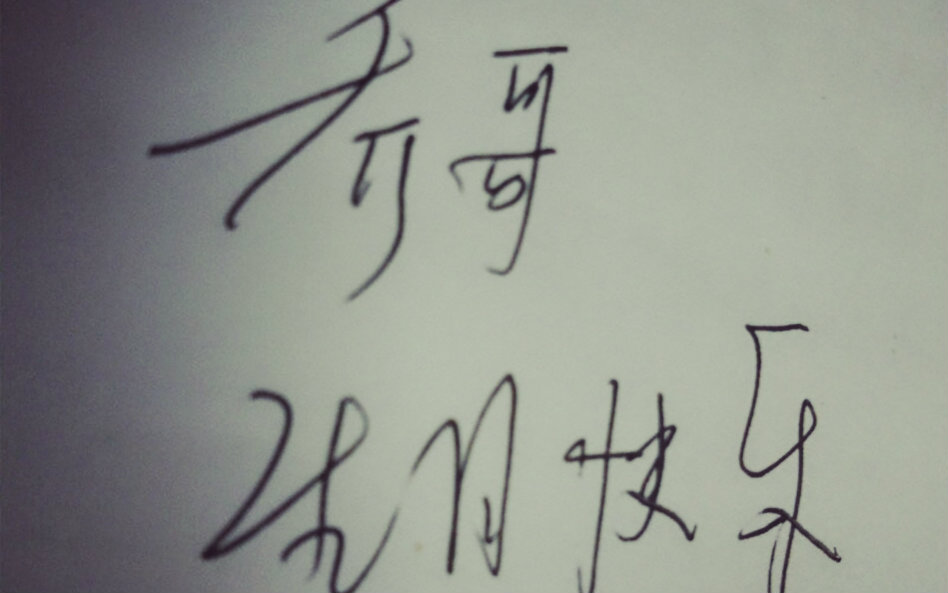 哥
生日快乐